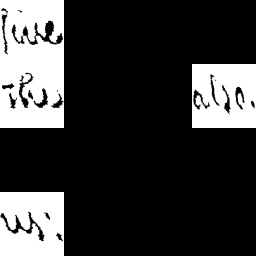 give
this also.
us.